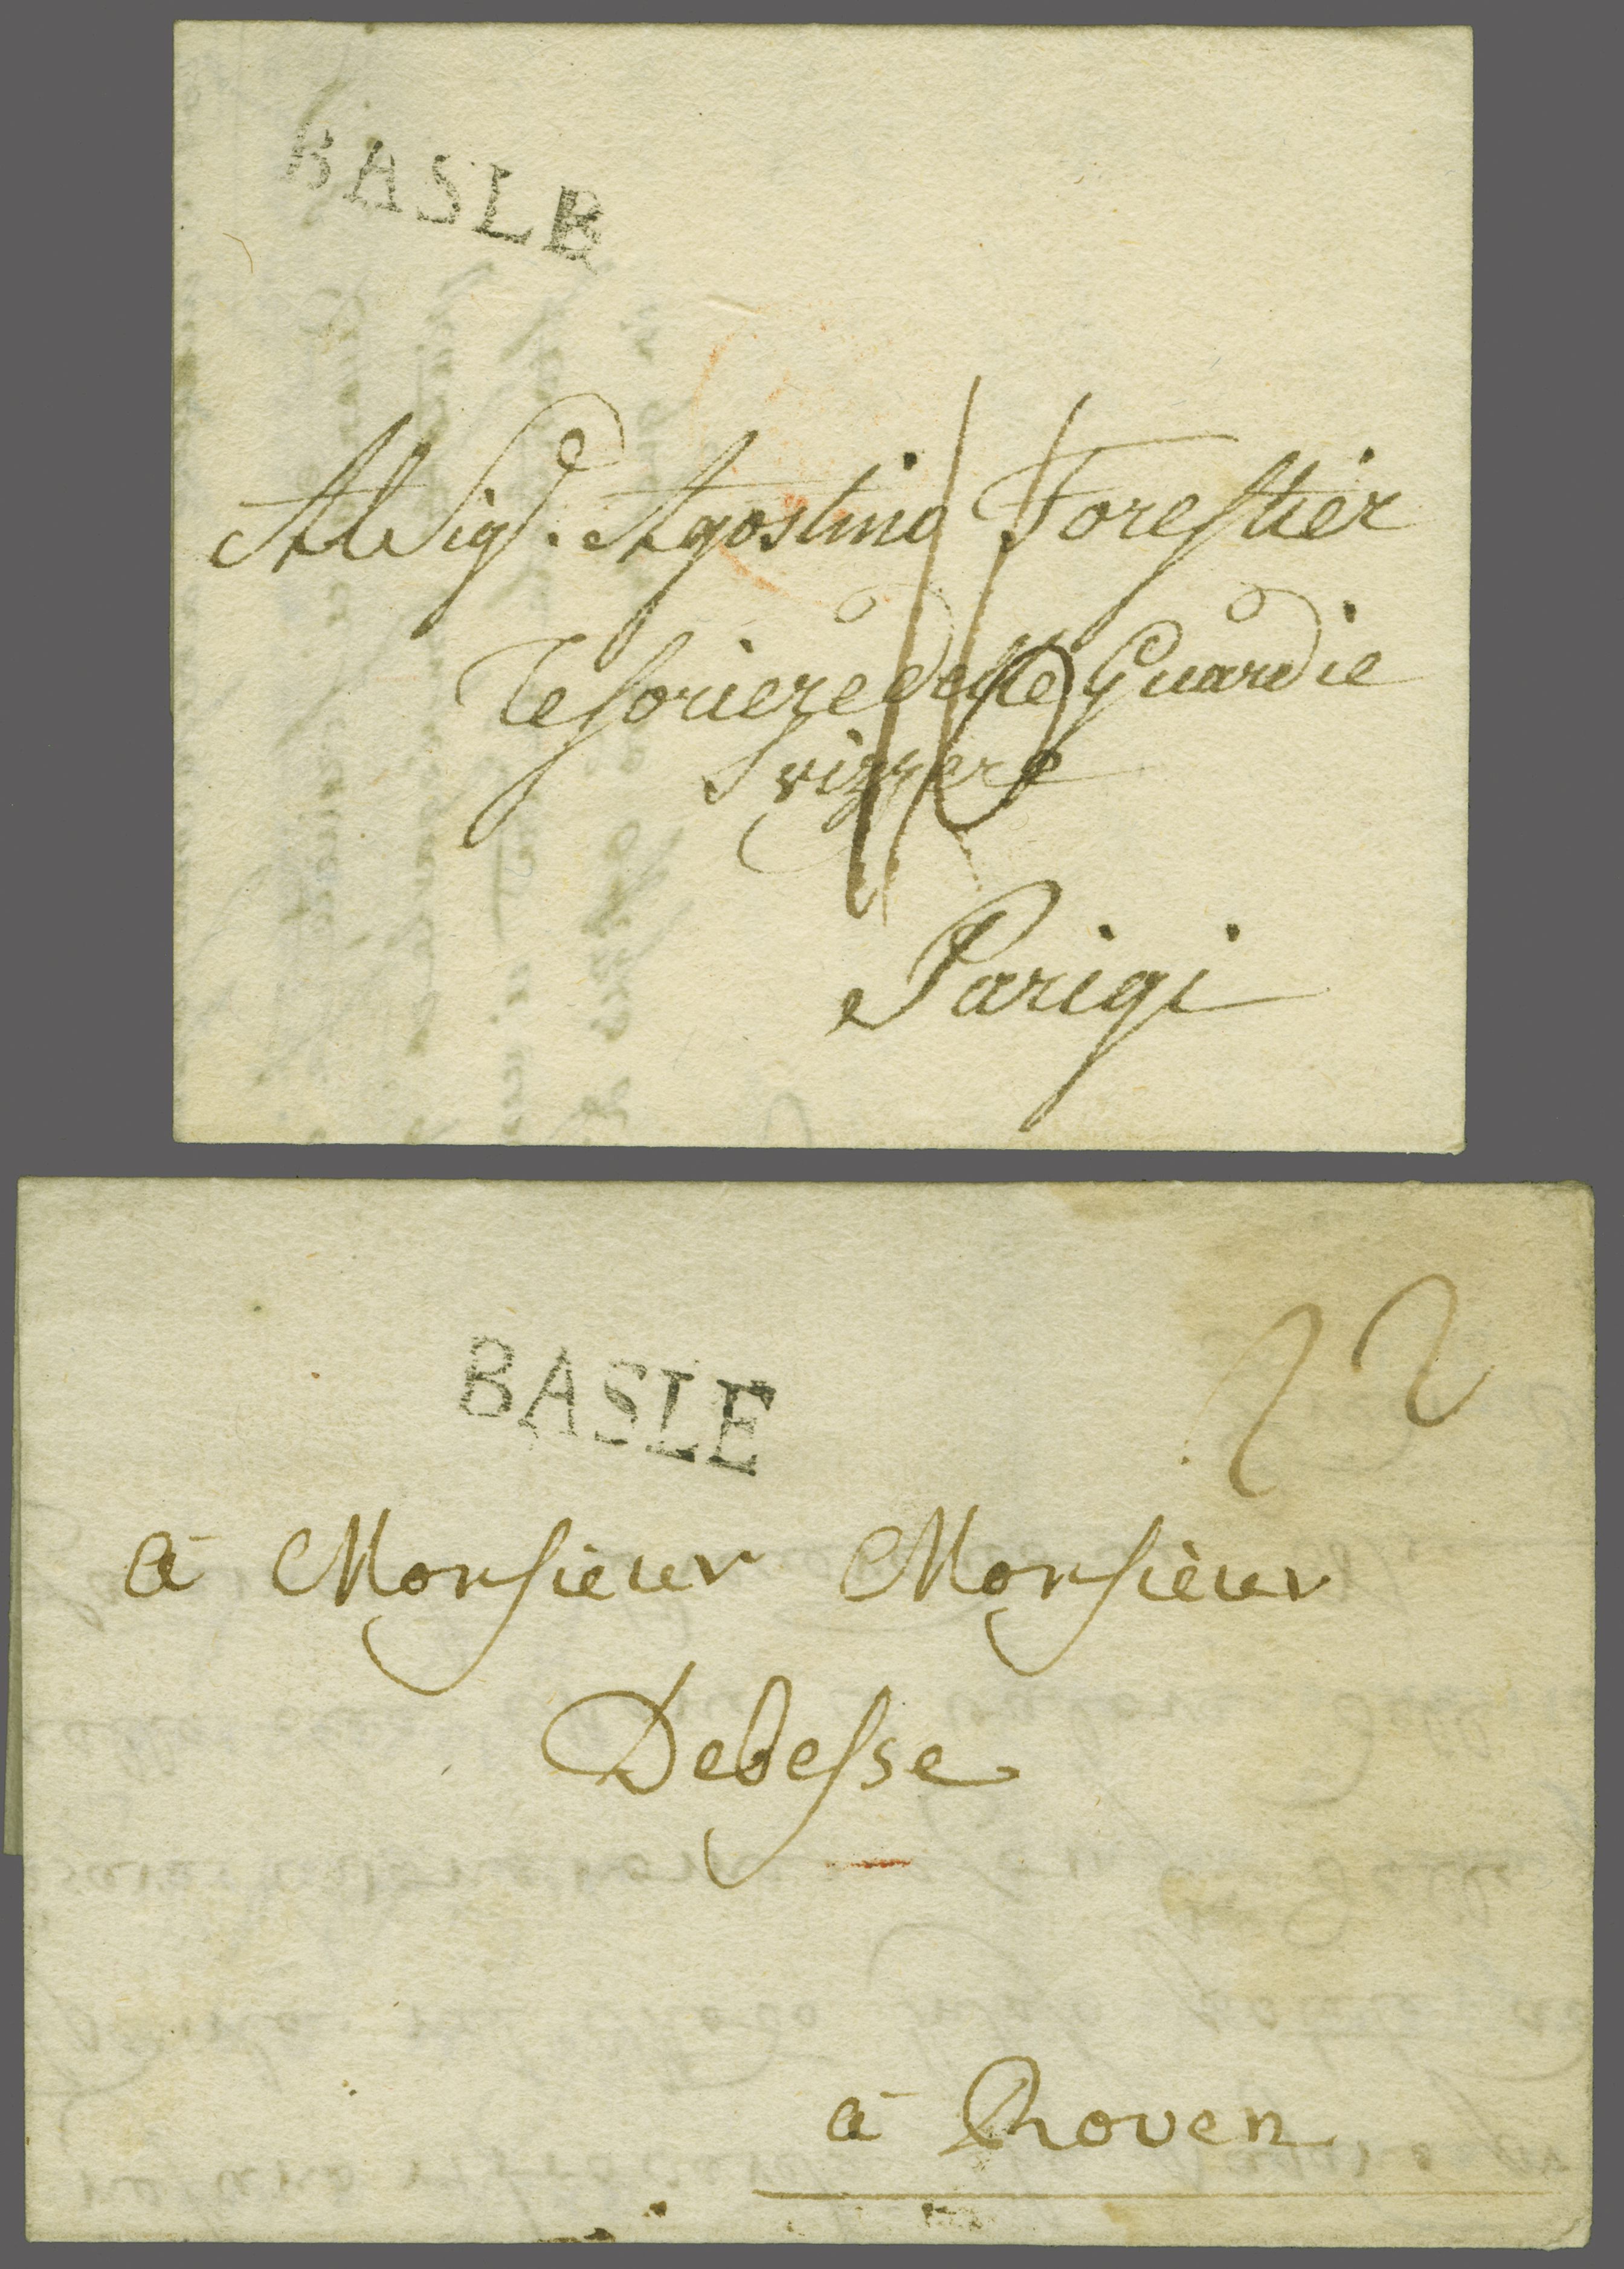 BASLE
Al Sigr. Agostino Forestier
Tesoriere delle Guardie
Svizzere
Parigi
BASLE
22
à Monsieur Monsieur
Debesse
à Rouen